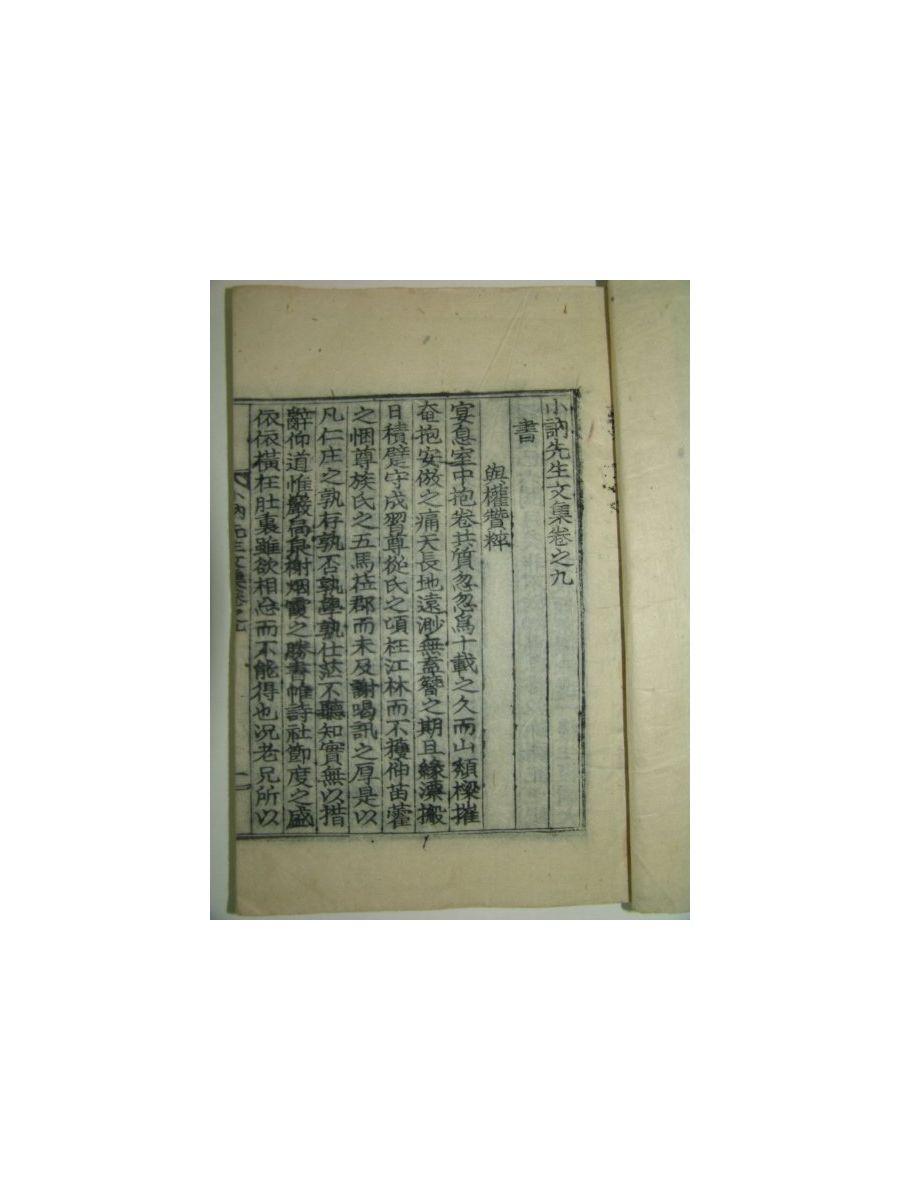 小訥先生文集卷之九
書
與權贊粹
宴息室中抱卷共質忽忽爲十載之久而山頹樑摧
奄抱安倣之痛天長地遠渺無盍簪之期且緣濂搬
日積躄守成習尊從氏之頃枉江林而不獲伸苗藿
之悃尊族氏之五馬莅郡而未及謝喝訊之厚是以
凡仁庄之孰存孰否孰學孰仕茫不聽知實無以措
辭仰道惟嚴局泉榭烟霞之勝書帷詩社節度之盛
依依橫在肚裏雖欲相忘而不能得也况老兄所以
訥先生文集卷之九
一